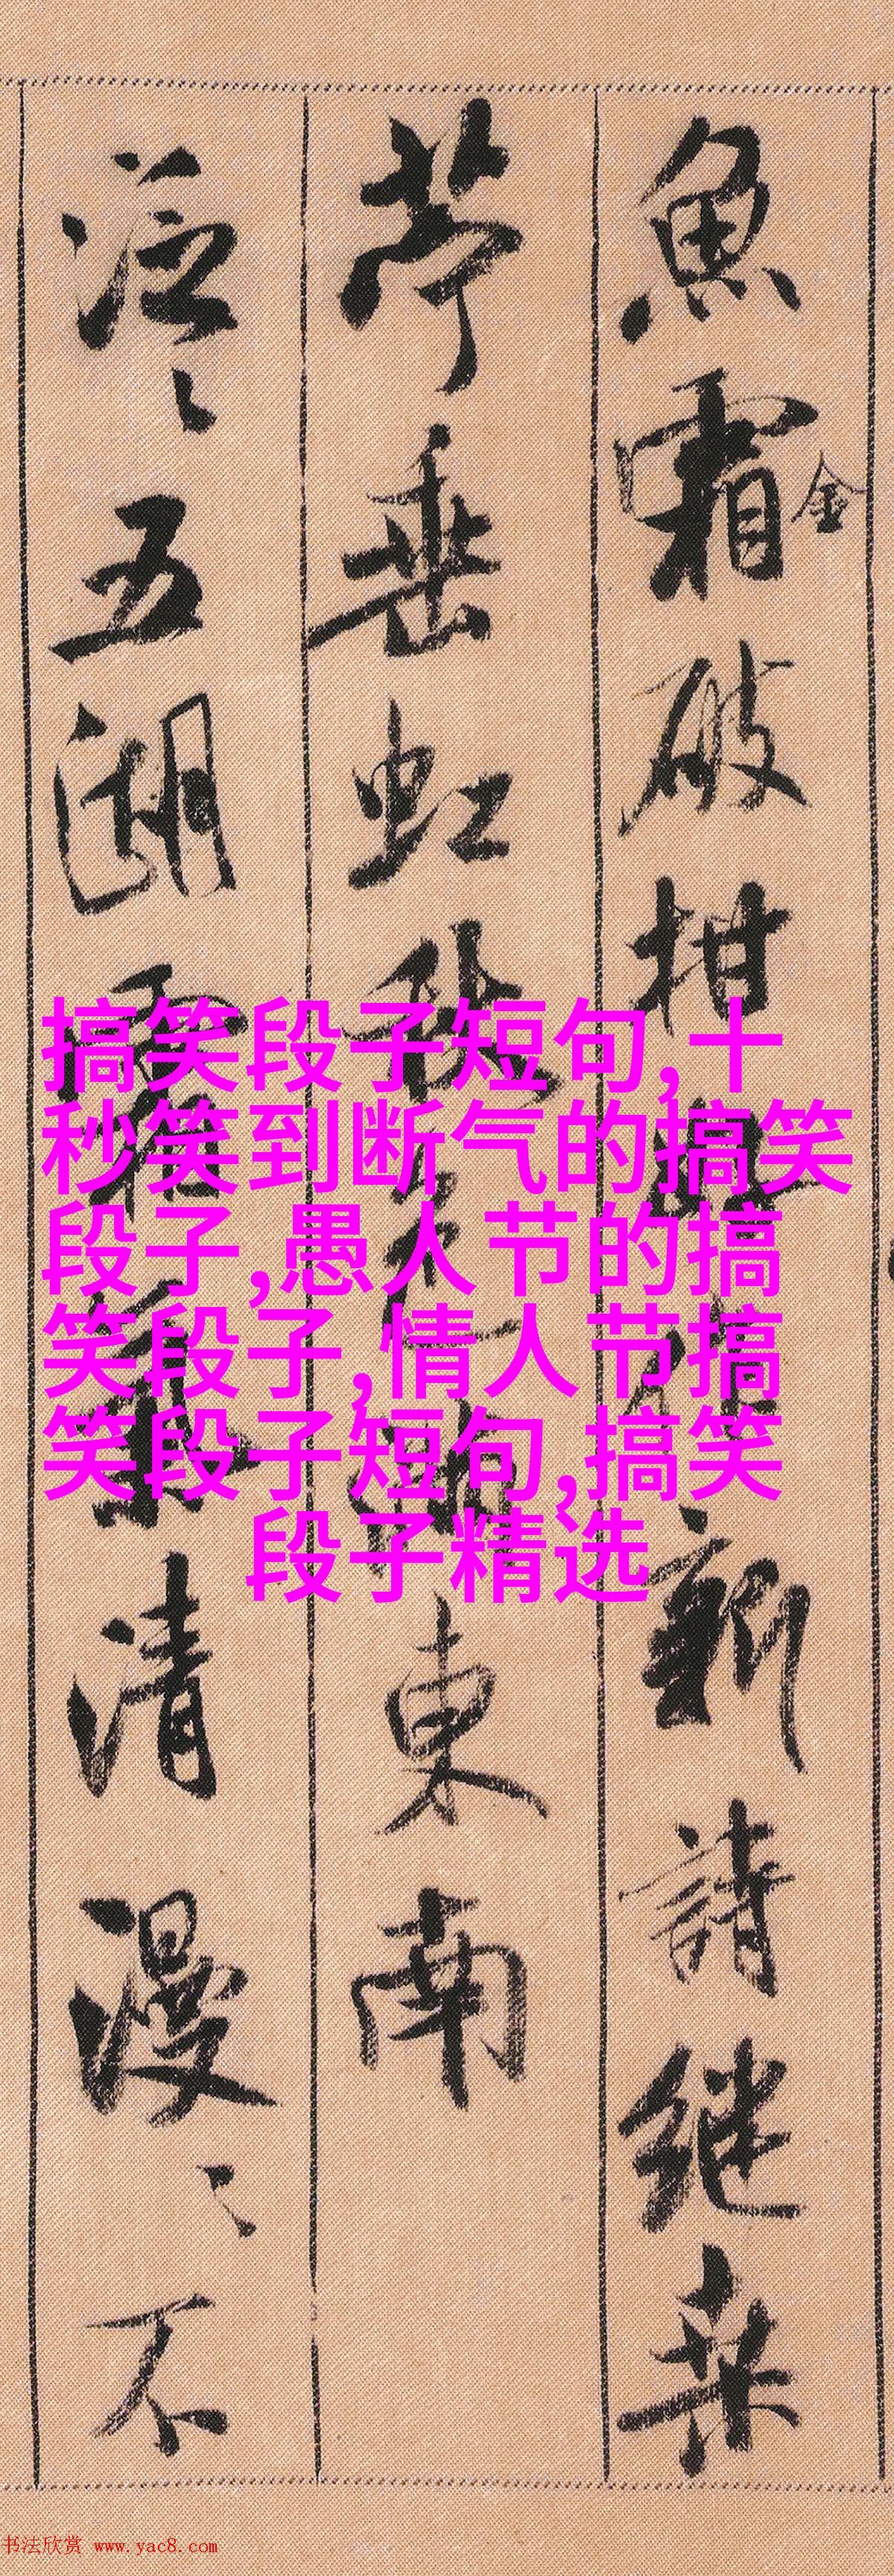 魚霜金破柑與作新詩继来
苧垂虹秋色滿東南
泛〻五湖霜氣清漫〻不
搞笑段子短句,十
秒笑到断气的搞笑
段子,愚人节的搞
笑段子,情人节搞
笑段子短句,搞笑
段子精选
书法欣赏 www.yac8.com